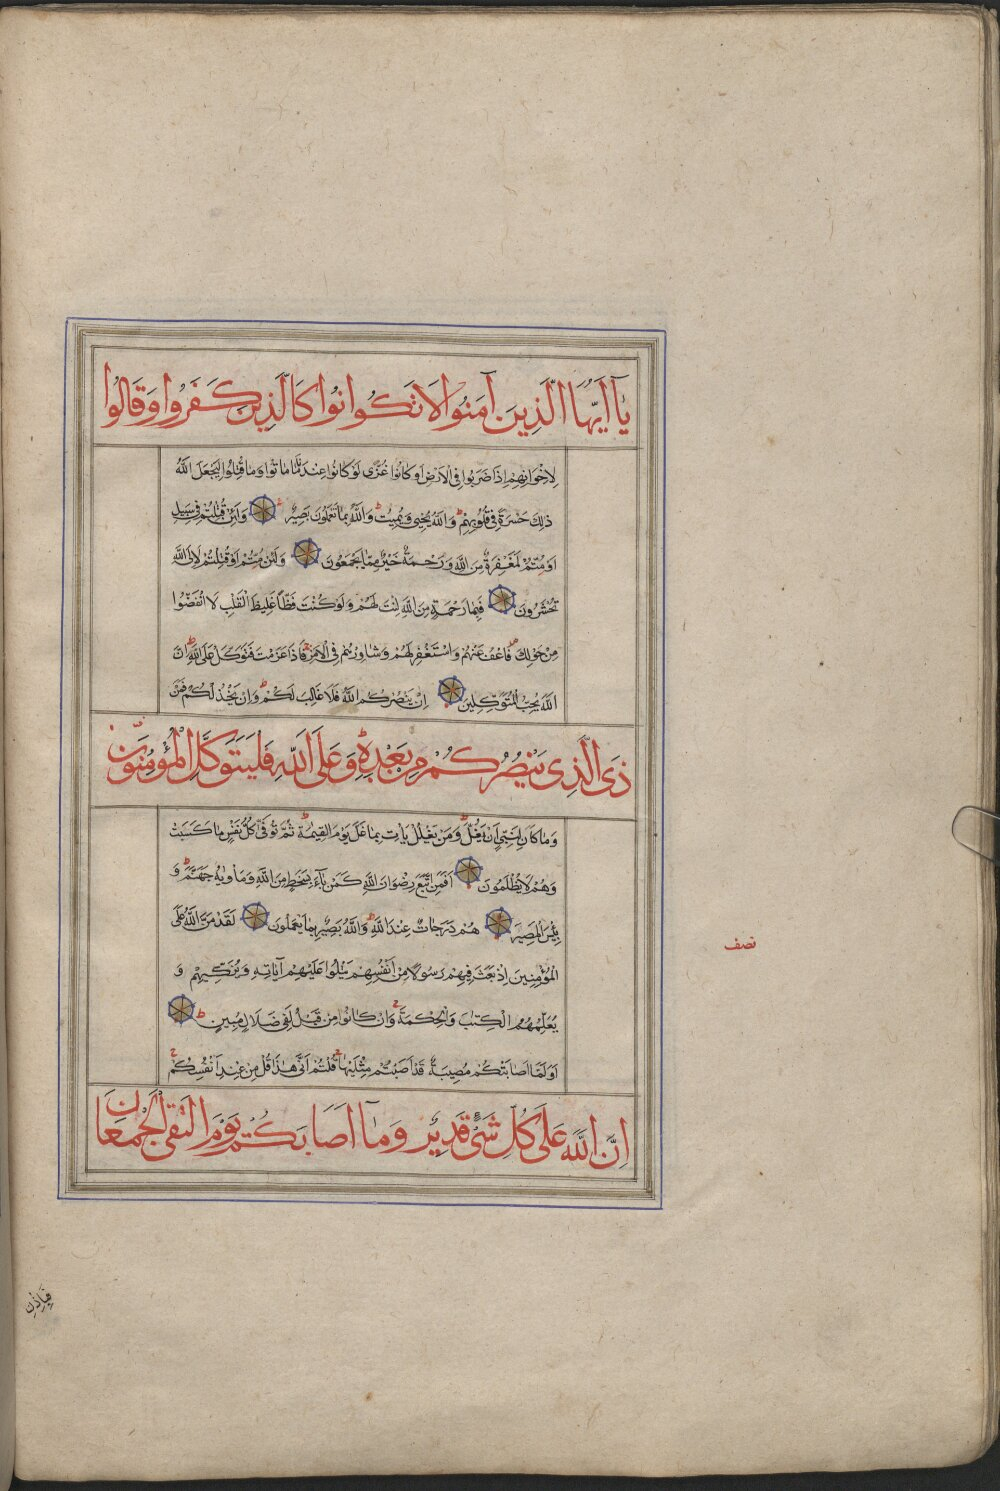 يَآ اَيُّهَا الَّذِينَ آمَنُوا لَا تَكُوانُوا كَالَّذِينَ كَفَرُوا وَقَالُوا
لِاِخْوَانِهِمْ اِذَا ضَرَبُوا فِي الْاَرْضِ اَوْ كَانُوا غُزًّى لَوْ كَانُوا عِنْدَنَا مَا مَاتُوا وَمَا قُتِلُوا لِيَجْعَلَ اللّٰهُ
ذٰلِكَ حَسْرَةً فِي قُلُوبِهِمْ ط وَاللّٰهُ يُحْيِي وَيُمِيتُ ط وَاللّٰهُ بِمَا تَعْمَلُونَ بَصِيرٌ وَلَئِنْ قُتِلْتُمْ فِي سَبِيلِ
اَوْ مُتُّمْ لَمَغْفِرَةٌ مِنَ اللّٰهِ وَرَحْمَةٌ خَيْرٌ مِمَّا يَجْمَعُونَ وَلَئِنْ مُتُّمْ اَوْ قُتِلْتُمْ لَاِلَى اللّٰهِ
تُحْشَرُونَ فَبِمَا رَحْمَةٍ مِنَ اللّٰهِ لِنْتَ لَهُمْ وَلَوْ كُنْتَ فَظًّا غَلِيظَ الْقَلْبِ لَا انْفَضُّوا
مِنْ حَوْلِكَ ص فَاعْفُ عَنْهُمْ وَاسْتَغْفِرْ لَهُمْ وَشَاوِرْهُمْ فِي الْاَمْرِ ج فَاِذَا عَزَمْتَ فَتَوَكَّلْ عَلَى اللّٰهِ ط اِنَّ
اللّٰهَ يُحِبُّ الْمُتَوَكِّلِينَ اِنْ يَنْصُرْكُمُ اللّٰهُ فَلَا غَالِبَ لَكُمْ ط وَاِنْ يَخْذُلْكُمْ فَمَنْ
ذَى الَّذِي يَنْصُرُكُمْ مِنْ بَعْدِهِ ط وَعَلَى اللّٰهِ فَلْيَتَوَكَّلِ الْمُؤْمِنُونَ
وَمَا كَانَ لِنَبِيٍّ اَنْ يَغُلَّ ط وَمَنْ يَغْلُلْ يَأْتِ بِمَا غَلَّ يَوْمَ الْقِيٰمَةِ ط ثُمَّ تُوَفَّى كُلُّ نَفْسٍ مَا كَسَبَتْ
وَهُمْ لَا يُظْلَمُونَ اَفَمَنِ اتَّبَعَ رِضْوَانَ اللّٰهِ كَمَنْ بَآءَ بِسَخَطٍ مِنَ اللّٰهِ وَمَأْوٰيهُ جَهَنَّمُ ط وَ
بِئْسَ الْمَصِيرُ هُمْ دَرَجَاتٌ عِنْدَ اللّٰهِ ط وَاللّٰهُ بَصِيرٌ بِمَا يَعْمَلُونَ لَقَدْ مَنَّ اللّٰهُ عَلَى
الْمُؤْمِنِينَ اِذْ بَعَثَ فِيهِمْ رَسُولًا مِنْ اَنْفُسِهِمْ يَتْلُوا عَلَيْهِمْ آيَاتِهِ وَيُزَكِّيهِمْ وَ
يُعَلِّمُهُمُ الْكِتٰبَ وَالْحِكْمَةَ ج وَاِنْ كَانُوا مِنْ قَبْلُ لَفِي ضَلَالٍ مُبِينٍ ط
اَوَلَمَّا اَصَابَتْكُمْ مُصِيبَةٌ قَدْ اَصَبْتُمْ مِثْلَيْهَا لا قُلْتُمْ اَنّٰى هٰذَا قُلْ مِنْ عِنْدِ اَنْفُسِكُمْ ج
اِنَّ اللّٰهَ عَلَى كُلِّ شَيْءٍ قَدِيْرٌ وَمَآ اَصَابَكُمْ يَوْمَ الْتَقَى الْجَمْعَانِ
نصف
فَبِاِذْنِ